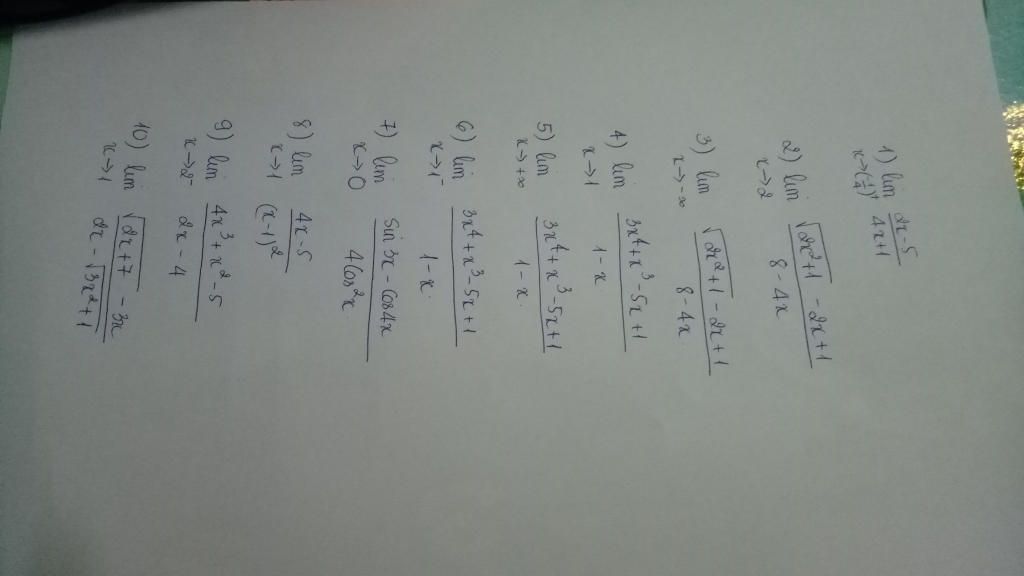 1) lim x→(-1/4)⁺ (2x-5)/(4x+1)
2) lim x→2 (√(2x²+1) - 2x+1)/(8-4x)
3) lim x→-∞ (√(2x²+1) - 2x+1)/(8-4x)
4) lim x→1 (3x⁴+x³-5x+1)/(1-x)
5) lim x→+∞ (3x⁴+x³-5x+1)/(1-x)
6) lim x→1⁻ (3x⁴+x³-5x+1)/(1-x)
7) lim x→0 (sin 3x - cos 4x)/(4cos²x)
8) lim x→1 (4x-5)/(x-1)²
9) lim x→2⁻ (4x³+x²-5)/(2x-4)
10) lim x→1 (√(2x+7) - 3x)/(2x-√(3x²+1))